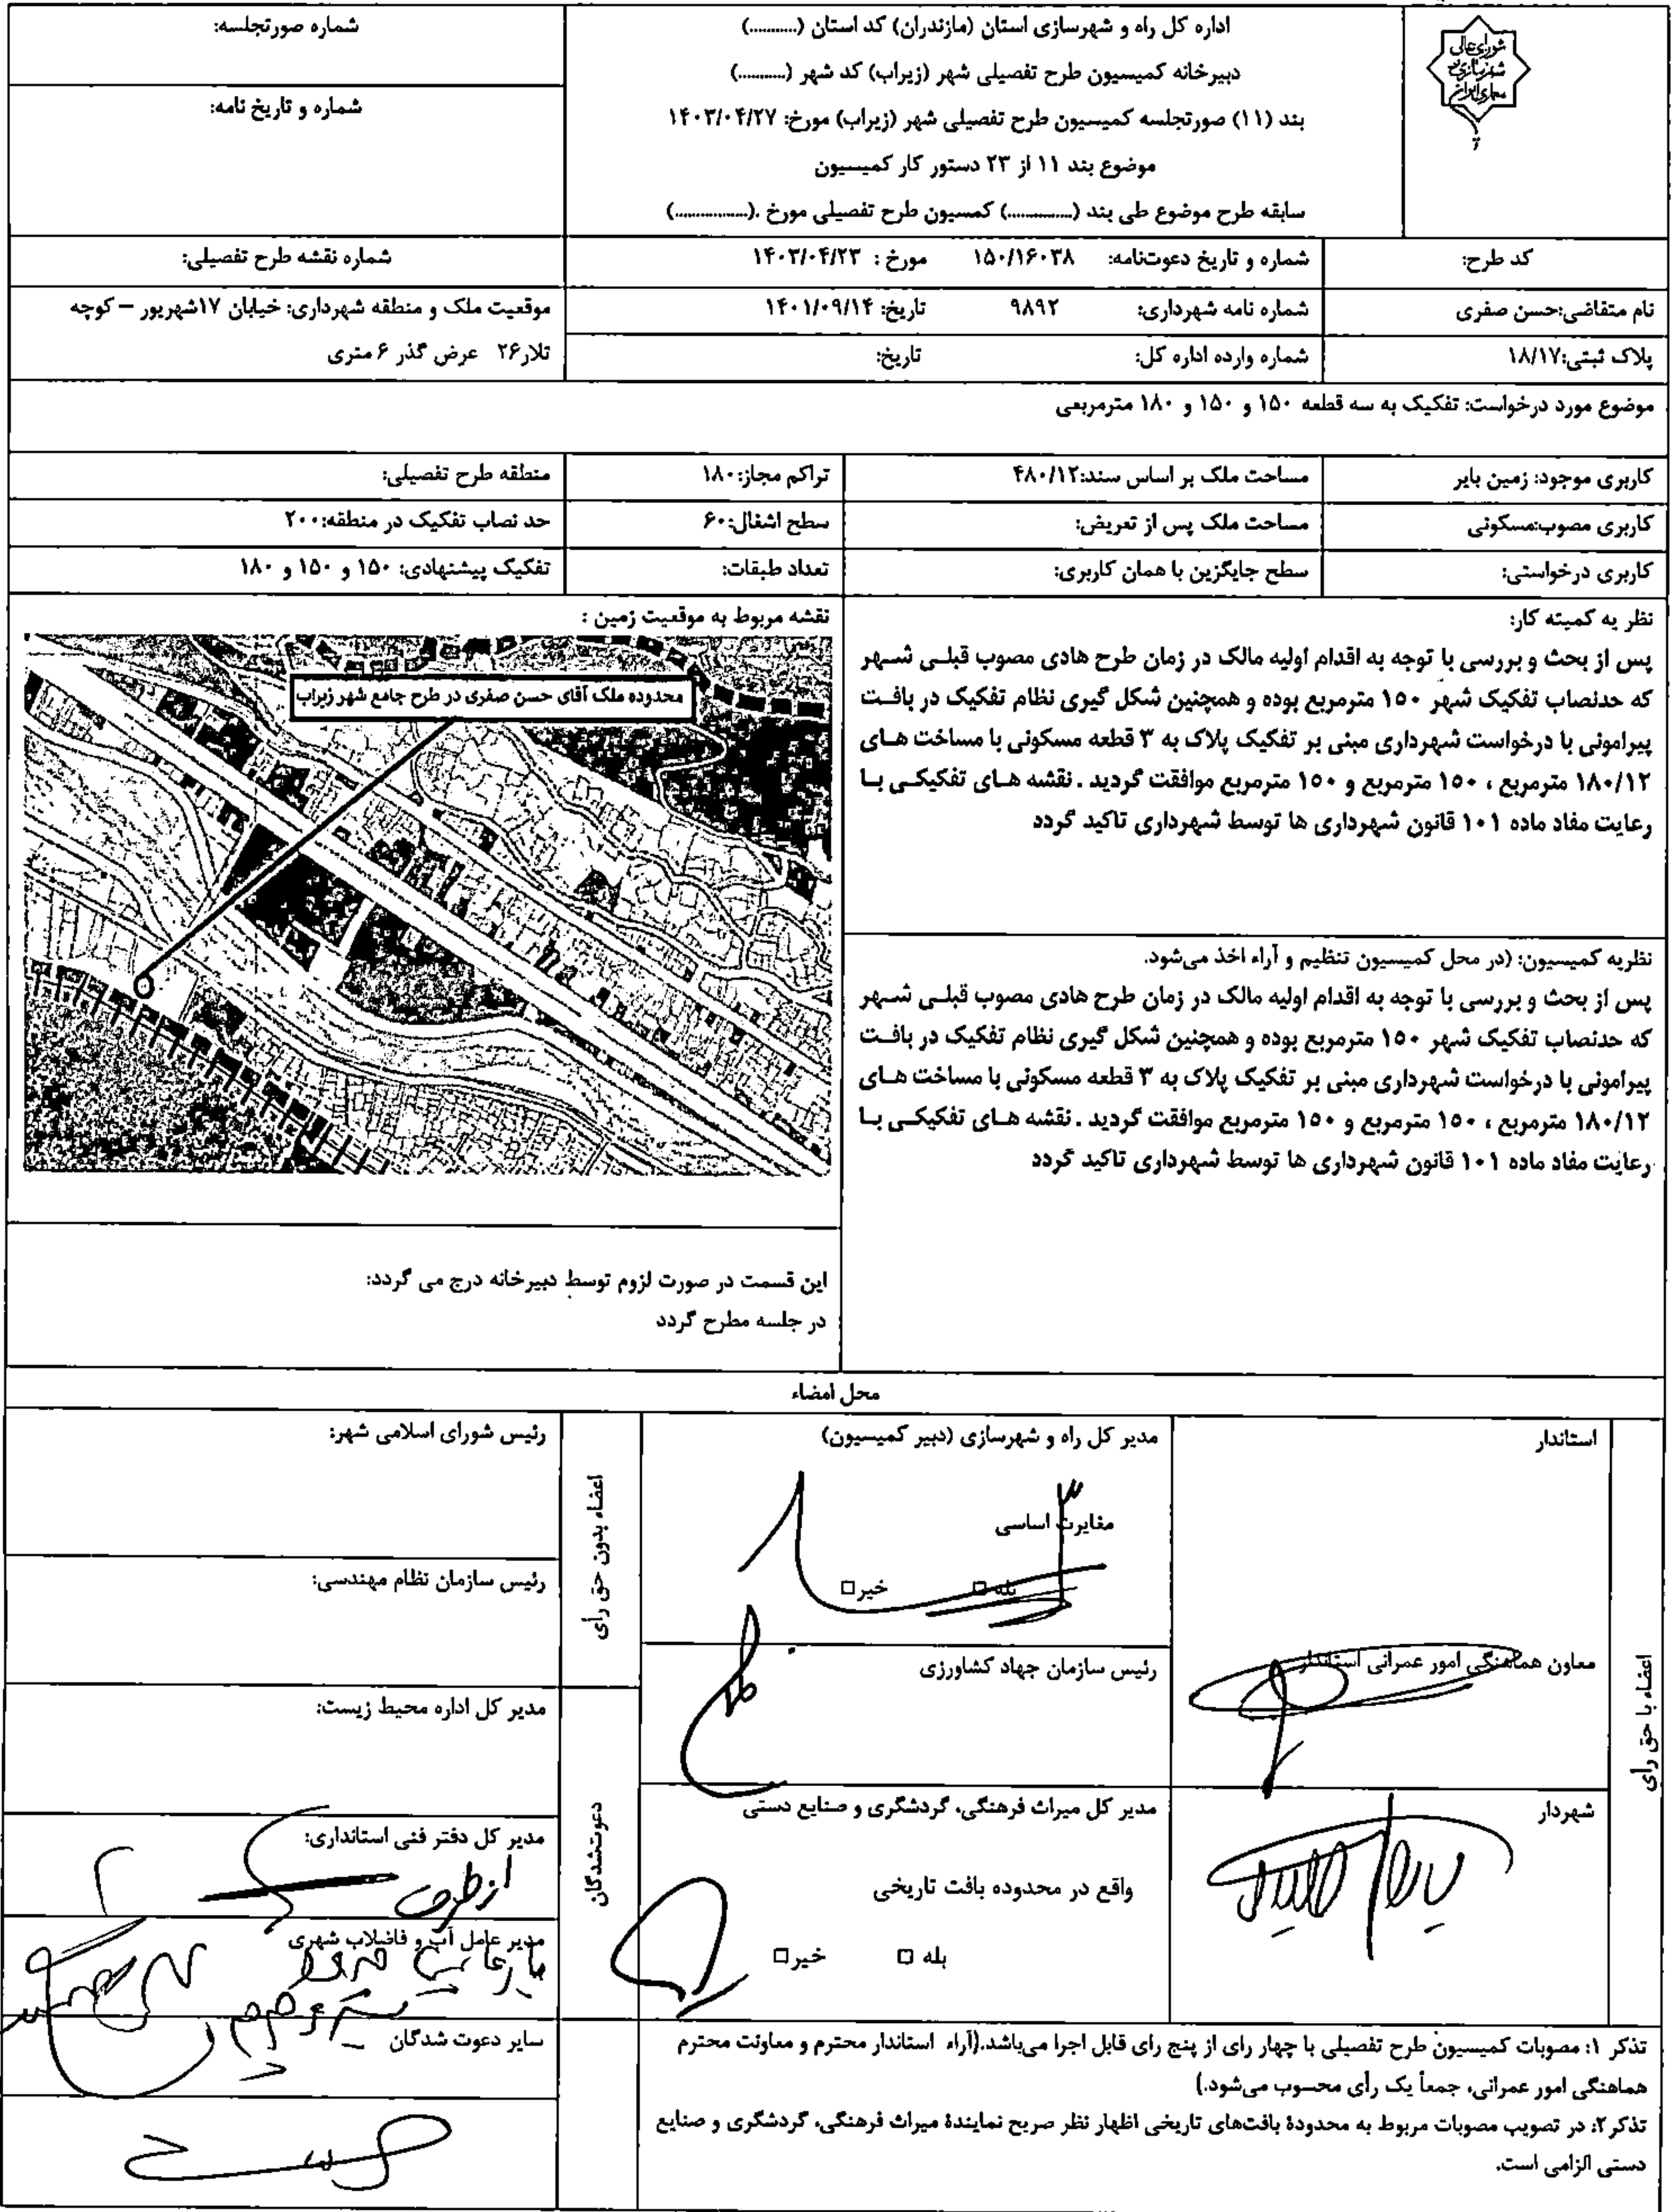 شورای عالی
شهرسازی و
معماری ایران
اداره کل راه و شهرسازی استان (مازندران) کد استان (...........)
دبیرخانه کمیسیون طرح تفصیلی شهر (زیراب) کد شهر (...........)
بند (۱۱) صورتجلسه کمیسیون طرح تفصیلی شهر (زیراب) مورخ: ۱۴۰۳/۰۴/۲۷
موضوع بند ۱۱ از ۲۳ دستور کار کمیسیون
سابقه طرح موضوع طی بند (..............) کمسیون طرح تفصیلی مورخ .(................)
شماره صورتجلسه:
شماره و تاریخ نامه:
کد طرح:
شماره و تاریخ دعوت‌نامه: ۱۵۰/۱۶۰۳۸ مورخ : ۱۴۰۳/۰۴/۲۳
شماره نقشه طرح تفصیلی:
نام متقاضی:حسن صفری
شماره نامه شهرداری: ۹۸۹۲ تاریخ: ۱۴۰۱/۰۹/۱۴
موقعیت ملک و منطقه شهرداری: خیابان ۱۷شهریور – کوچه
تلار۲۶ عرض گذر ۶ متری
پلاک ثبتی:۱۸/۱۷
شماره وارده اداره کل: تاریخ:
موضوع مورد درخواست: تفکیک به سه قطعه ۱۵۰ و ۱۵۰ و ۱۸۰ مترمربعی
کاربری موجود: زمین بایر
مساحت ملک بر اساس سند:۴۸۰/۱۲
تراکم مجاز:۱۸۰
منطقه طرح تفصیلی:
کاربری مصوب:مسکونی
مساحت ملک پس از تعریض:
سطح اشغال:۶۰
حد نصاب تفکیک در منطقه:۲۰۰
کاربری درخواستی:
سطح جایگزین با همان کاربری:
تعداد طبقات:
تفکیک پیشنهادی: ۱۵۰ و ۱۵۰ و ۱۸۰
نظر یه کمیته کار:
پس از بحث و بررسی با توجه به اقدام اولیه مالک در زمان طرح هادی مصوب قبلی شهر
که حدنصاب تفکیک شهر ۱۵۰ مترمربع بوده و همچنین شکل گیری نظام تفکیک در بافت
پیرامونی با درخواست شهرداری مبنی بر تفکیک پلاک به ۳ قطعه مسکونی با مساخت های
۱۸۰/۱۲ مترمربع ، ۱۵۰ مترمربع و ۱۵۰ مترمربع موافقت گردید . نقشه های تفکیکی با
رعایت مفاد ماده ۱۰۱ قانون شهرداری ها توسط شهرداری تاکید گردد
نقشه مربوط به موقعیت زمین :
محدوده ملک آقای حسن صفری در طرح جامع شهر زیراب
نظریه کمیسیون: (در محل کمیسیون تنظیم و آراء اخذ می‌شود.
پس از بحث و بررسی با توجه به اقدام اولیه مالک در زمان طرح هادی مصوب قبلی شهر
که حدنصاب تفکیک شهر ۱۵۰ مترمربع بوده و همچنین شکل گیری نظام تفکیک در بافت
پیرامونی با درخواست شهرداری مبنی بر تفکیک پلاک به ۳ قطعه مسکونی با مساخت های
۱۸۰/۱۲ مترمربع ، ۱۵۰ مترمربع و ۱۵۰ مترمربع موافقت گردید . نقشه های تفکیکی با
رعایت مفاد ماده ۱۰۱ قانون شهرداری ها توسط شهرداری تاکید گردد
این قسمت در صورت لزوم توسط دبیرخانه درج می گردد:
در جلسه مطرح گردد
محل امضاء
اعضاء با حق رأی
استاندار
معاون هماهنگی امور عمرانی استاندار
شهردار
مدیر کل راه و شهرسازی (دبیر کمیسیون)
مغایرت اساسی
بله □ خیر□
رئیس سازمان جهاد کشاورزی
مدیر کل میراث فرهنگی، گردشگری و صنایع دستی
واقع در محدوده بافت تاریخی
بله □ خیر□
اعضاء بدون حق رأی
رئیس شورای اسلامی شهر:
رئیس سازمان نظام مهندسی:
دعوت‌شدگان
مدیر کل اداره محیط زیست:
مدیر کل دفتر فنی استانداری:
از طرف
مدیر عامل آب و فاضلاب شهری
با رعایت حدود
بستر و حریم
سایر دعوت شدگان
تذکر ۱: مصوبات کمیسیون طرح تفصیلی با چهار رای از پنج رای قابل اجرا می‌باشد.(آراء استاندار محترم و معاونت محترم
هماهنگی امور عمرانی، جمعاً یک رأی محسوب می‌شود.)
تذکر ۲: در تصویب مصوبات مربوط به محدودۀ بافت‌های تاریخی اظهار نظر صریح نمایندۀ میراث فرهنگی، گردشگری و صنایع
دستی الزامی است.